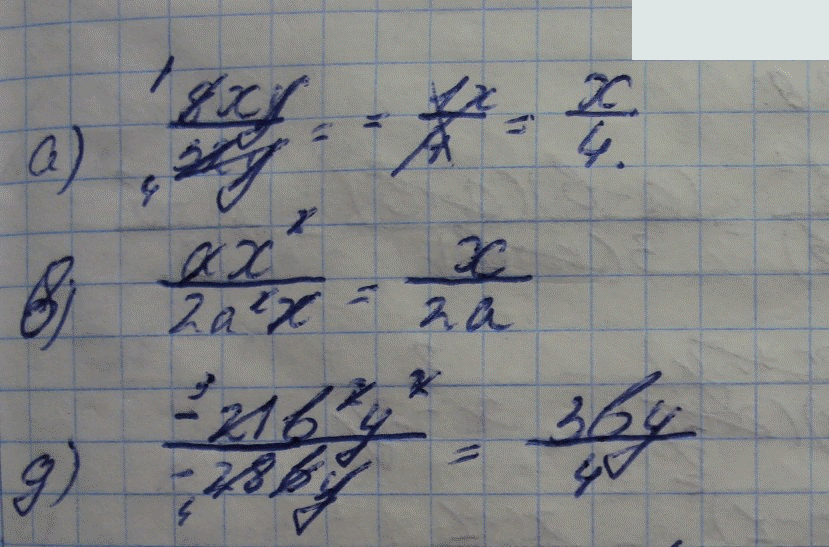 а) 8xy/32y = = 1x/4 = x/4.
в) ax²/2a²x = x/2a
д) -21b²y²/-28by = 3by/4